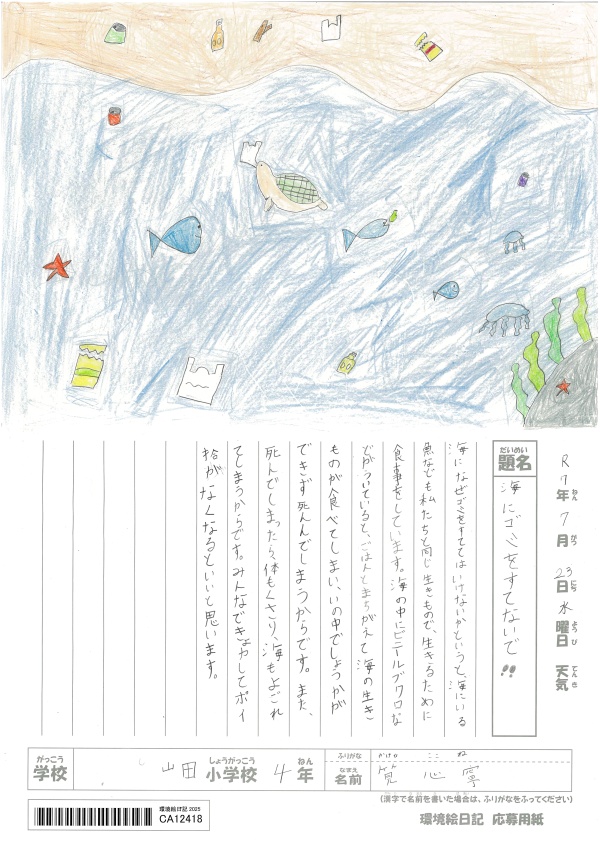 R7年ねん7月がつ23日にち水曜日ようび 天気てんき
だいめい
題名
海にゴミをすてないで!!
海になぜゴミをすててはいけないかというと、海にいる
魚なども私たちと同じ生きもので、生きるために
食事をしています。海の中にビニールブクロな
どがういていると、ごはんとまちがえて海の生き
ものが食べてしまい、いの中でしょうかが
できず死んんでしまうからです。また、
死んでしまったら、体もくさり、海もよごれ
てしまうからです。みんなできょカしてポイ
捨がなくなるといいと思います。
がっこう しょうがっこう ねん ふりがな かけい ここ ね
学校 山田 小学校 4年 なまえ 名前 筧 心寧
(漢字で名前を書いた場合は、ふりがなをふってください)
環境絵日記 2025
CA12418
環境絵日記 応募用紙